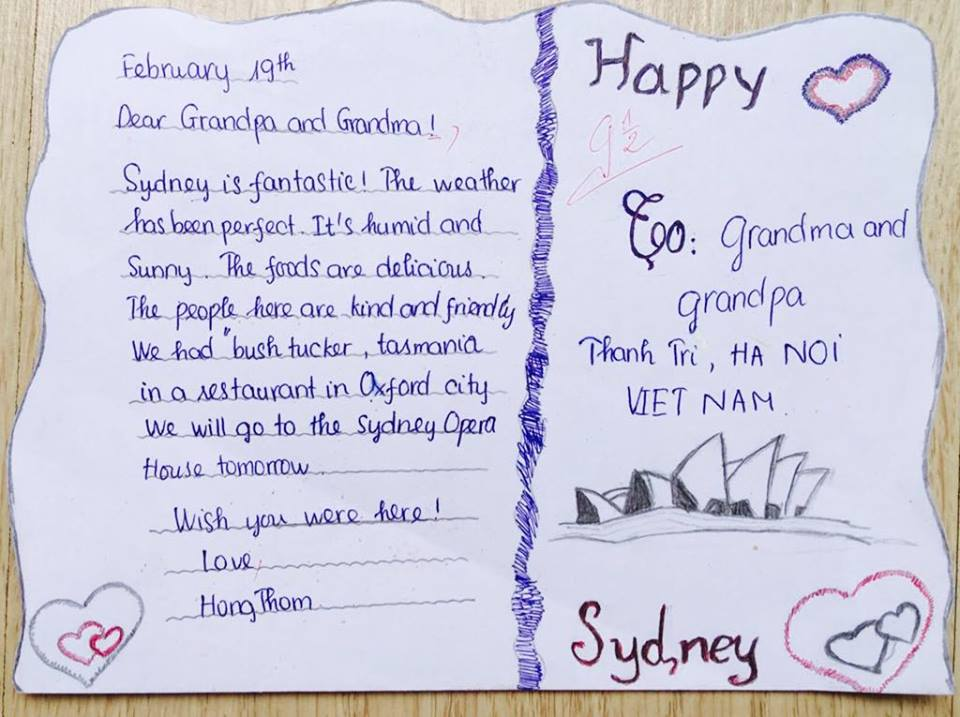 February 19th
Dear Grandpa and Grandma!,
Sydney is fantastic! The weather
has been perfect. It's humid and
Sunny. The foods are delicious.
The people here are kind and friendly
We had "bush tucker, tasmania
in a restaurant in Oxford city
We will go to the Sydney Opera
House tomorrow
Wish you were here!
Love,
Hong Thom
Happy
9 1/2
To: Grandma and
grandpa
Thanh Tri, HA NOi
VIET NAM.
Syd,ney